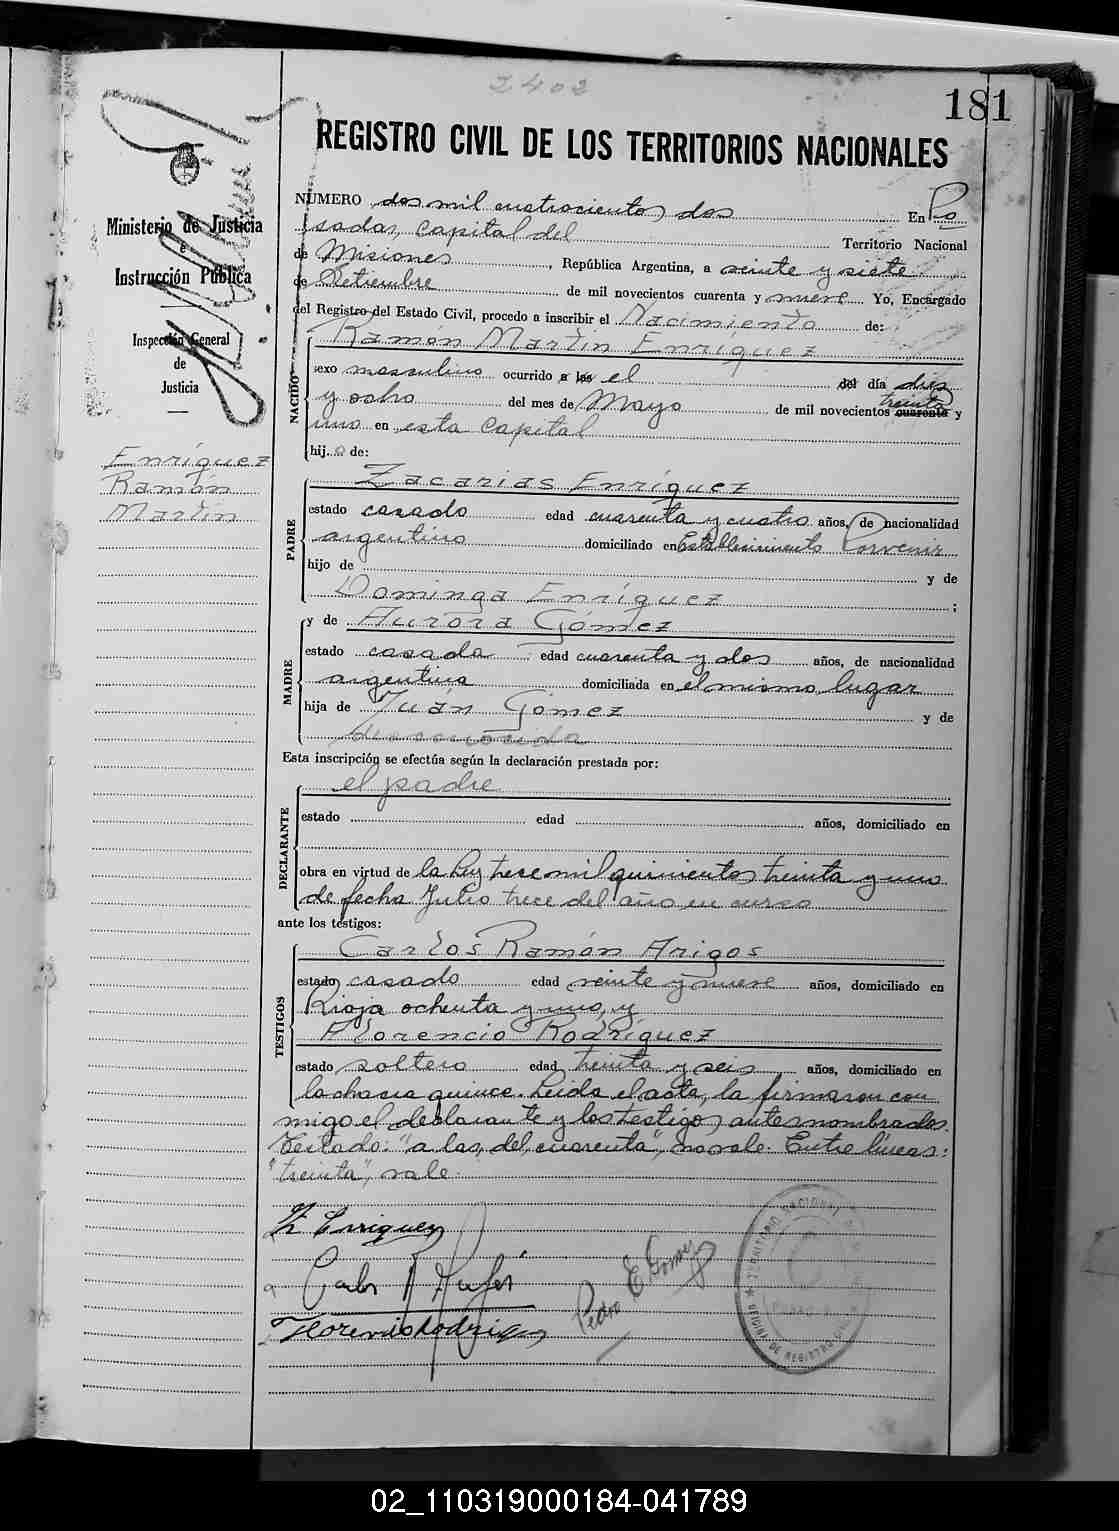 2402
181
REGISTRO CIVIL DE LOS TERRITORIOS NACIONALES
Ministerio de Justicia
e
Instrucción Pública
Inspección General
de
Justicia
Enríquez
Ramón
Martín
NÚMERO dos mil cuatrocientos dos En Po
sadas, capital del Territorio Nacional
de Misiones, República Argentina, a veinte y siete
de Setiembre de mil novecientos cuarenta y nueve Yo, Encargado
del Registro del Estado Civil, procedo a inscribir el Nacimiento de:
NACIDO
Ramón Martín Enríquez
sexo masculino ocurrido a las el del día diez
y ocho del mes de Mayo de mil novecientos cuarenta treinta y
uno en esta Capital
hij o de:
PADRE
Zacarias Enríquez
estado casado edad cuarenta y cuatro años, de nacionalidad
argentino domiciliado en Establecimiento Porvenir
hijo de y de
Dominga Enríquez ;
y de Aurora Gómez
MADRE
estado casada edad cuarenta y dos años, de nacionalidad
argentina domiciliada en el mismo lugar
hija de Juán Gómez y de
desconocida
Esta inscripción se efectúa según la declaración prestada por:
DECLARANTE
el padre
estado edad años, domiciliado en
obra en virtud de la Ley trece mil quinientos treinta y uno
de fecha Julio trece del año en curso
ante los testigos:
TESTIGOS
Carlos Ramón
estado casado edad veinte y nueve años, domiciliado en
Rioja ochenta y uno, y
Florencio Rodríguez
estado soltero edad treinta y seis años, domiciliado en
la chacra quince. Leida el acta, la firmaron con
migo el declarante y los testigos antes nombrados.
Testado: "a las, del, cuarenta", no vale. Entre líneas:
"treinta", vale
Z Enriquez
Carlos R
Florencio Rodriguez
Pedro E. Gomez
TERRITORIO NACIONAL
POSADAS
OFICINA DE REGISTRO CIVIL
02_110319000184-041789